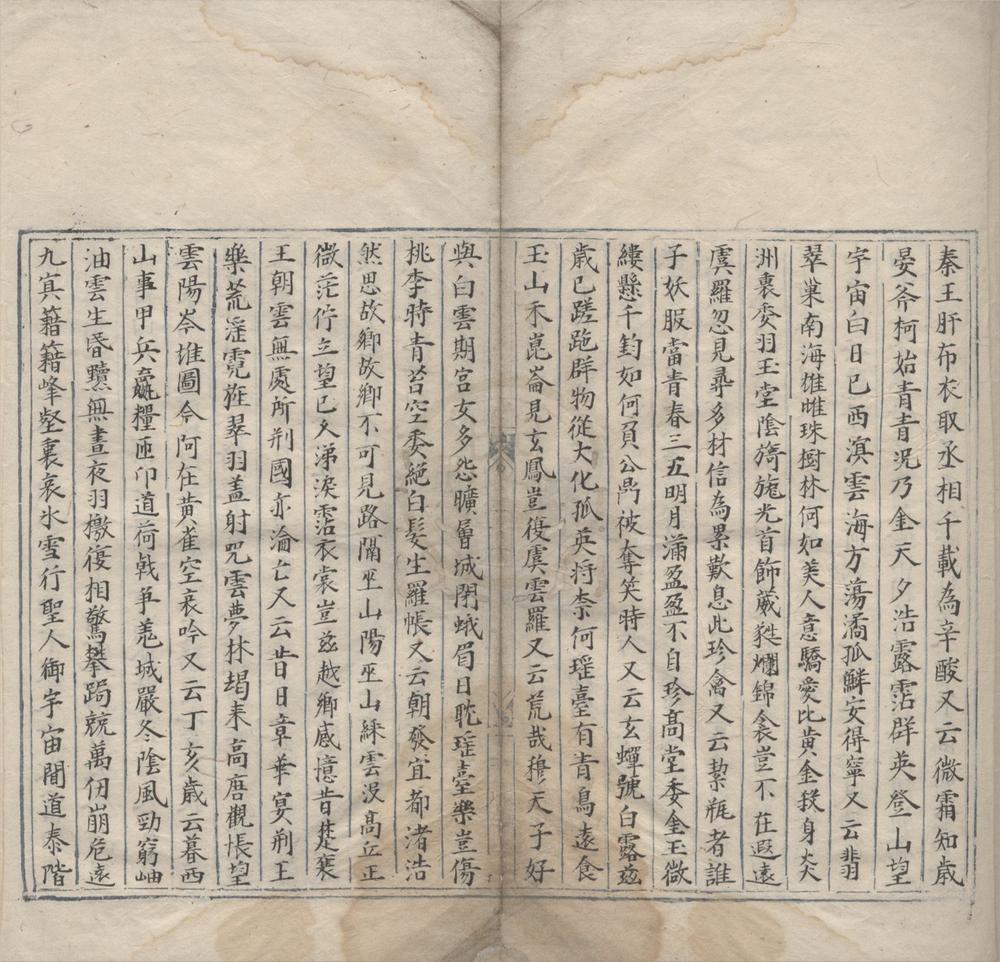 秦王肝布衣取丞相千載為辛酸又云微霜知歲
晏斧柯始青青况乃金天夕浩露霑群英登山望
宇宙白日已西瞑雲海方蕩潏孤鱗安得寧又云翡
翠巢南海雄雌珠樹林何如美人意驕愛比黄金殺身炎
洲裏委羽玉堂陰旖旎光首飾葳甤爛錦衾豈不在遐遠
虞羅忽見尋多材信為累歎息此珍禽又云挈瓶者誰
子妖服當青春三五明月滿盈盈不自珍髙堂委金玉微
縷懸千鈞如何負公鼎被奪笑時人又云玄蟬號白露兹
歲已蹉跎群物從大化孤英將柰何瑶臺有青鳥逺食
玉山禾崑崙見玄鳳豈復虞雲羅又云荒哉穆天子好
與白雲期宫女多怨曠層城閉蛾眉日耽瑶臺樂豈傷
桃李時青苔空委絕白髮生羅帳又云朝發宜都渚浩
然思故鄉故鄉不可見路隔巫山陽巫山綵雲没髙丘正
微茫佇立望已久涕淚霑衣裳豈兹越鄉感憶昔楚襄
王朝雲無處所荆國亦淪亡又云昔日章華宴荆王
樂荒淫霓旌翠羽盖射兕雲夢林朅来高唐觀悵望
雲陽岑雄圖今何在黄雀空哀吟又云丁亥歲云暮西
山事甲兵羸糧匝卬道荷戟争羗城嚴冬陰風勁窮岫
油雲生昏曀無晝夜羽檄復相驚攀跼兢萬仞崩危逺
九㝠籍籍峰壑裏哀哀氷雪行聖人御宇宙聞道泰階